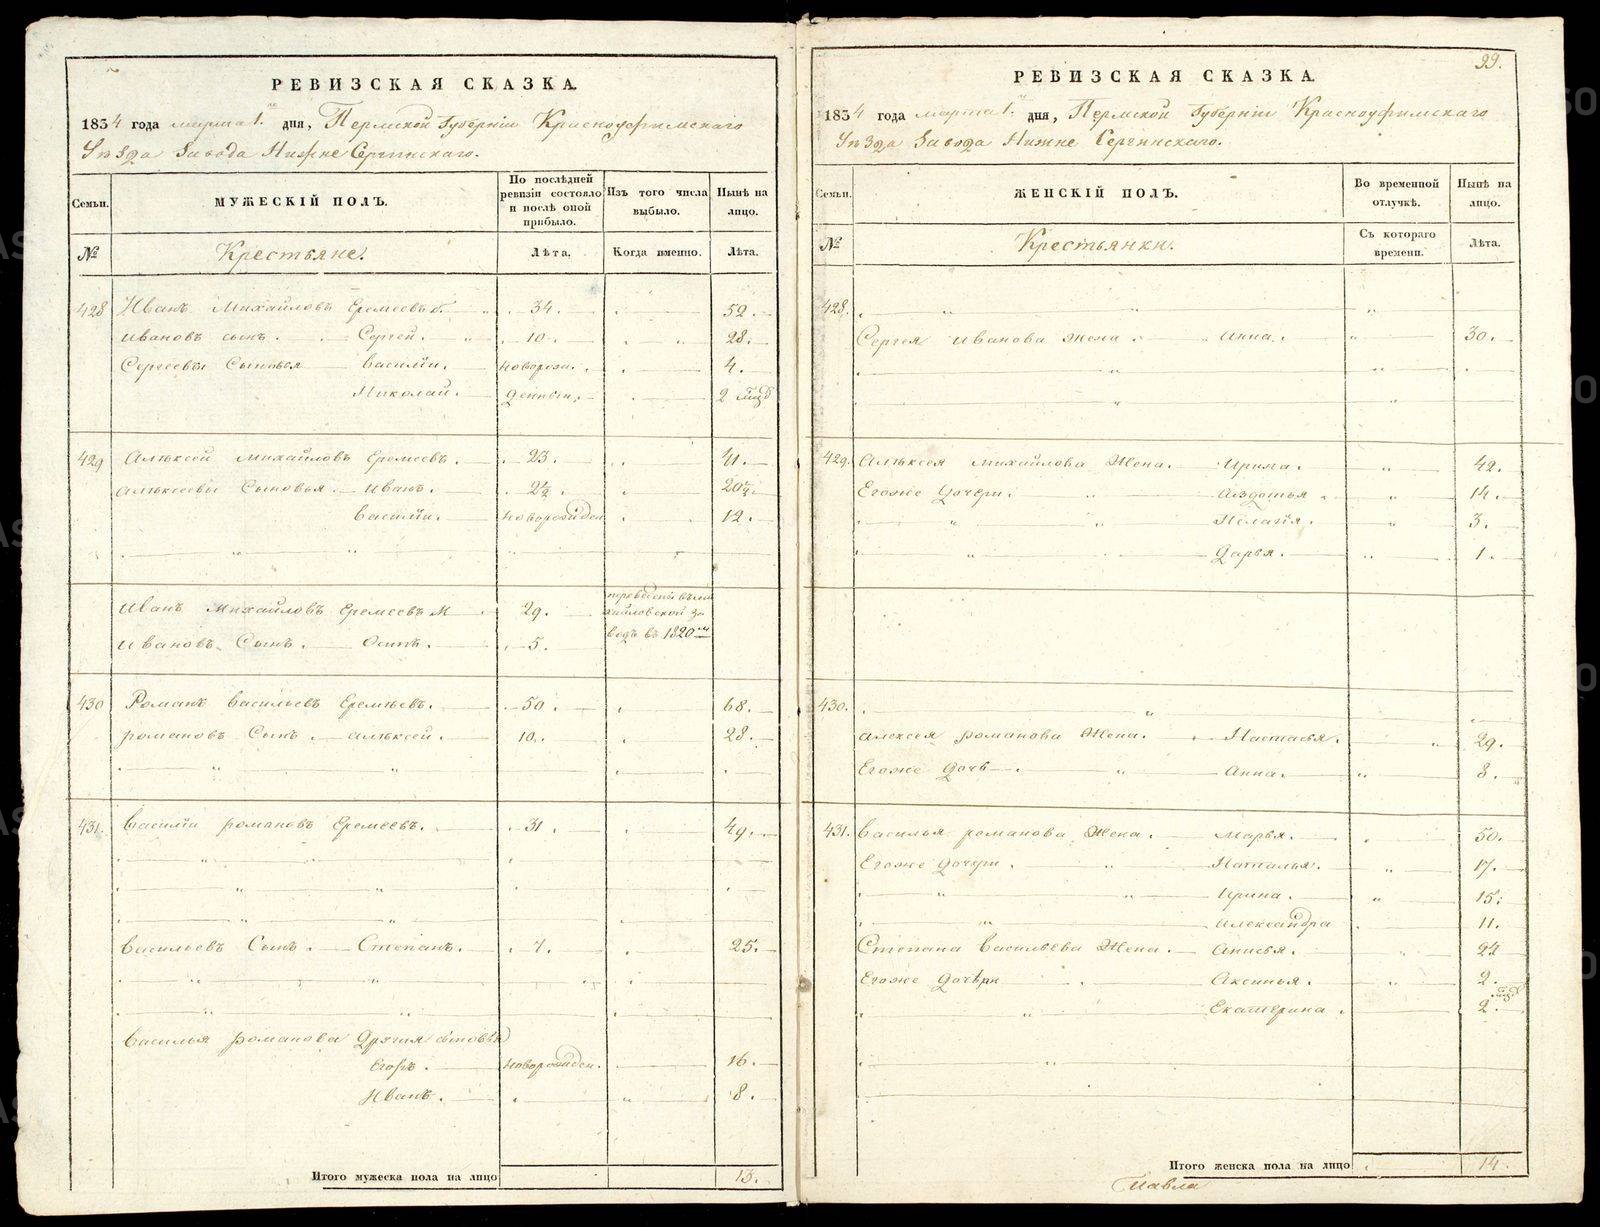 РЕВИЗСКАЯ СКАЗКА.
1834 года марта 1. дня, Пермской Губерніи Красноуфимскаго
Уѣзда Завода Нижне Сергинскаго.
Семьи. МУЖЕСКІЙ ПОЛЪ. По послѣдней ревизіи состояло и послѣ оной прибыло. Изъ того числа выбыло. Нынѣ на лицо.
№ Крестьяне. Лѣта. Когда именно. Лѣта.
428 Иванъ Михайловъ Еремеевъ б. 34. 52.
Ивановъ сынъ. Сергей. 10. 28.
Сергеевы Сыновья Василіи. новорожд. 4.
Николай. 2
429 Алѣксей михайловъ Еремеевъ. 23. 41.
Алѣксеевы Сыновья. Иванъ. 2½. 20½.
Василіи. Новорожден 12.
Иванъ михайловъ Еремеевъ М 29. переведены въ ми
хайловской за
Ивановъ Сынъ. Осипъ. 5. водъ въ 1820мъ
430 Романъ Васильевъ Еремѣевъ. 50. 68.
романовъ Сынъ. алѣксей. 10. 28.
431. Василіи романовъ Еремеевъ. 31. 49.
Васильевъ Сынъ. Степанъ. 7. 25.
Василья романова Другия сыновья
Егоръ. Новорожден. 16.
Иванъ. 8.
Итого мужеска пола на лицо 13.
99.
РЕВИЗСКАЯ СКАЗКА.
1834 года марта 1. дня, Пермской Губерніи Красноуфимскаго
Уѣзда Завода Нижне Сергинскаго.
Семьи. ЖЕНСКІЙ ПОЛЪ. Во временной отлучкѣ. Нынѣ на лицо.
№ Крестьянки. Съ котораго времени. Лѣта.
428.
Сергея Иванова жена Анна. 30.
429. Алѣксея михайлова Жена. Ирина. 42.
Егоже Дочери. Авдотья 14.
Пелагия. 3.
Дарья. 1.
430.
алексея романова Жена. Настасья. 29.
Егоже Дочь Анна. 8.
431. Василья романова Жена. Марья. 50.
Егоже Дочери. Наталья. 17.
Ирина. 15.
Александра 11.
Степана Васильева Жена. Анисья. 24
Егоже Дочѣри Аксинья. 2.
Екатерина. 2.
Итого женска пола на лицо 14.